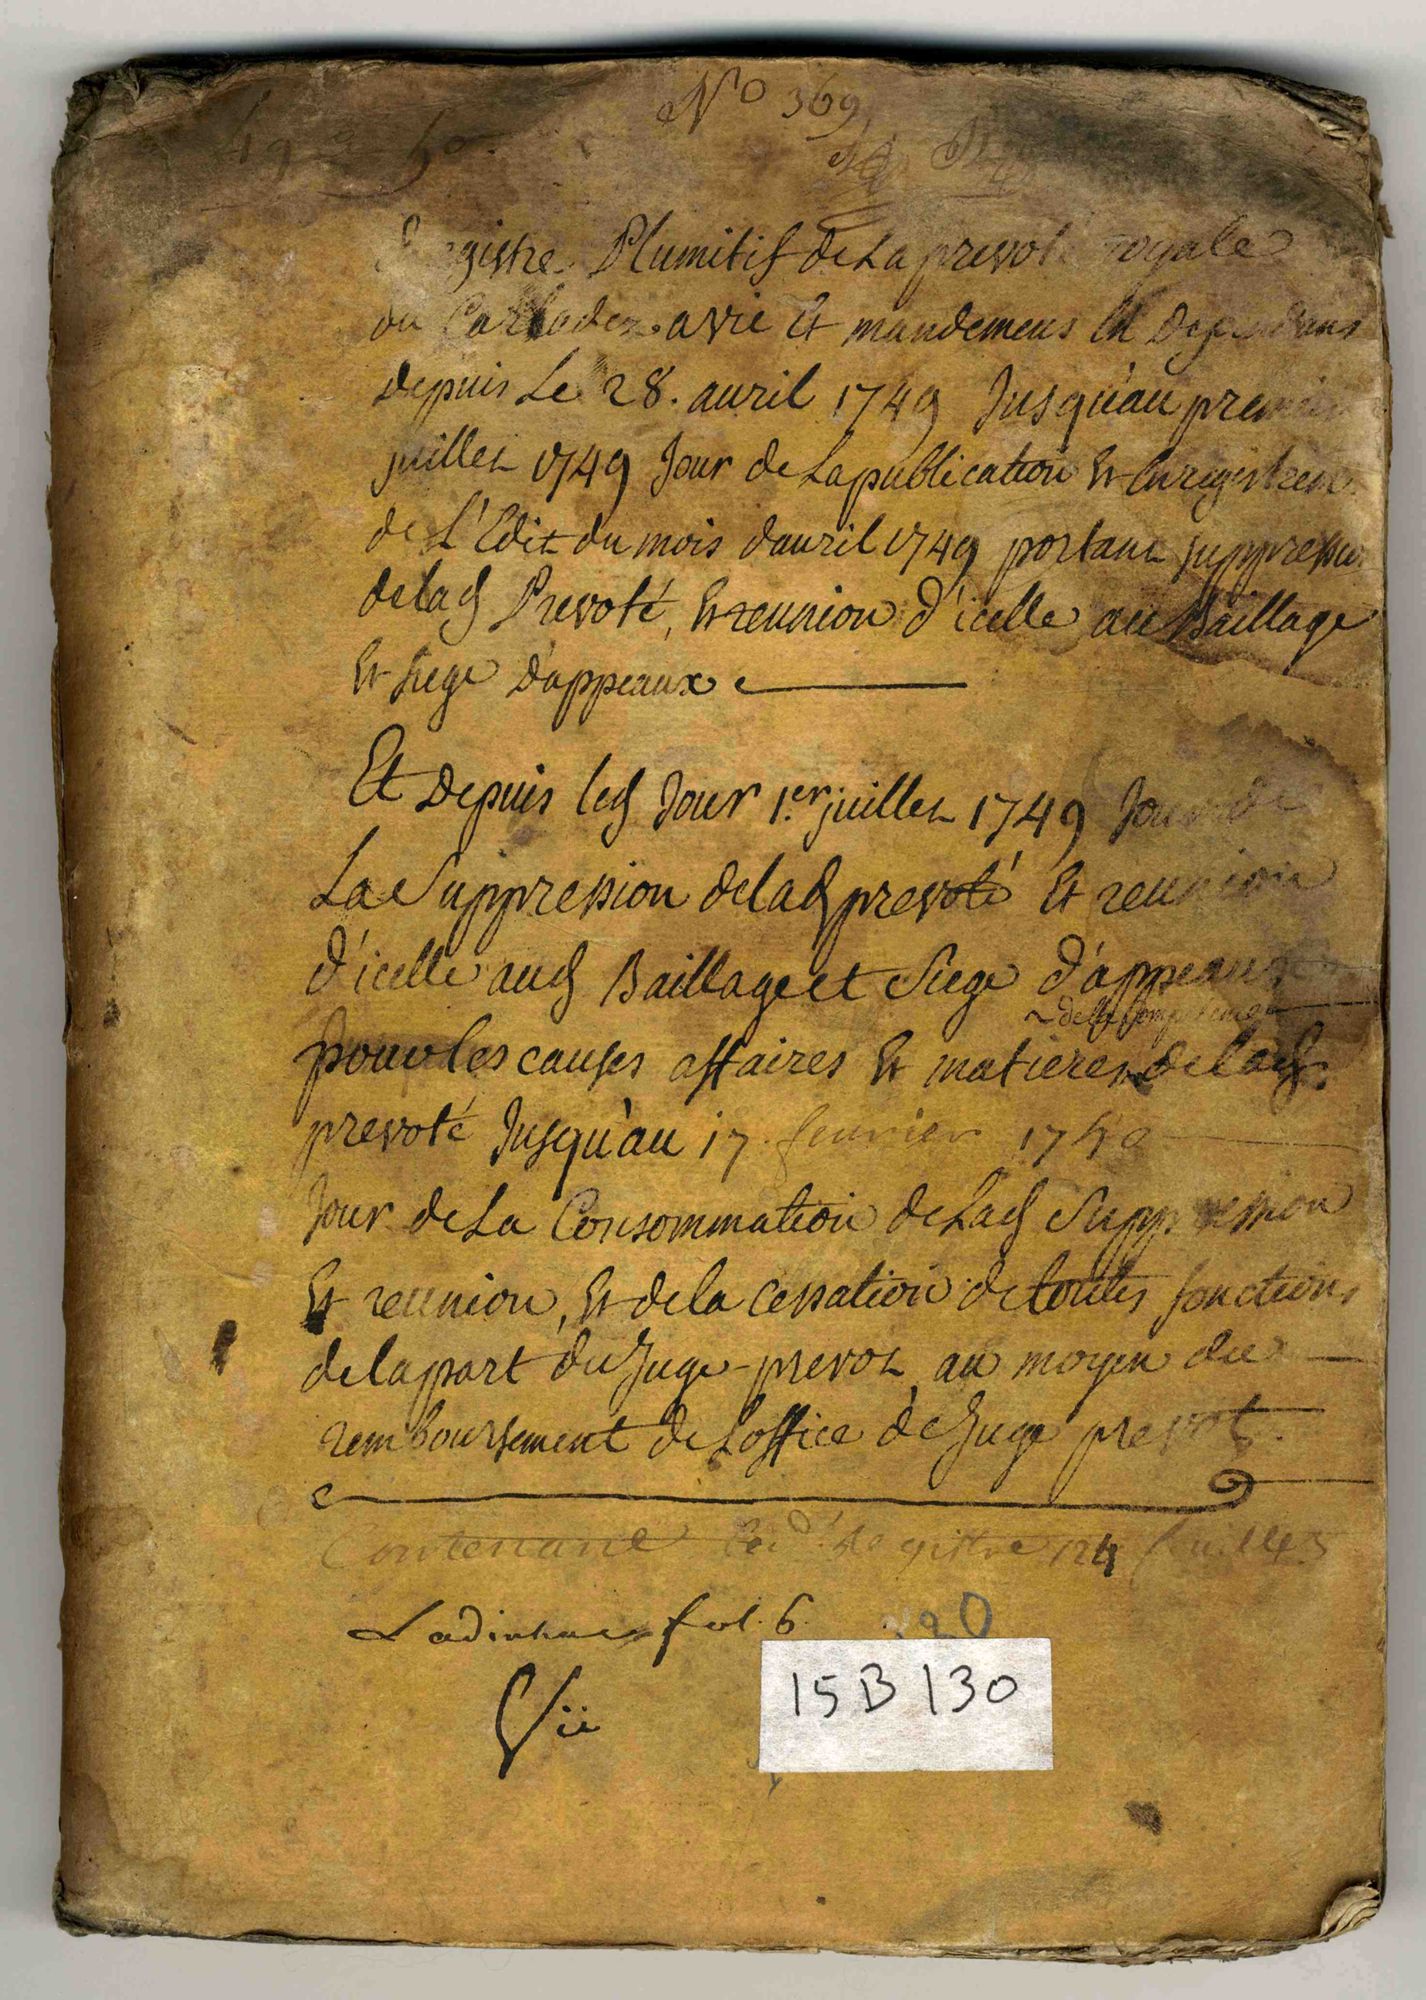 N° 369
49 a 50.
Registre Plumitif de La prevoté royale
du Carladez a vic Et mandemens En Dependans
Depuis Le 28. avril 1749 Jusqu'au premier
juillet 1749 Jour de La publication Et Enregistrem.
de L'Edit du mois d'avril 1749 portant suppression
de lad Prevoté, Et reunion d'icelle au Baillage
Et siege D'appeaux
Et Depuis led Jour 1.er juillet 1749 Jour de
La Suppression de lad prevoté Et reunion
d'icelle aud Baillage et Siege d'appeaux
de la Competence
pour les causes affaires Et matieres de lad
prevoté Jusqu'au 17. fevrier 1750
Jour de La Consommation de Lad Suppression
Et reunion, Et de la Cessation de toutes fonctions
de la part du Juge-prevot au moyen du
remboursement de L'office de Juge prevot.
Contenant led. Registre 124 feuillets
Ladinhac fol. 6.
20
Vii
15B 130